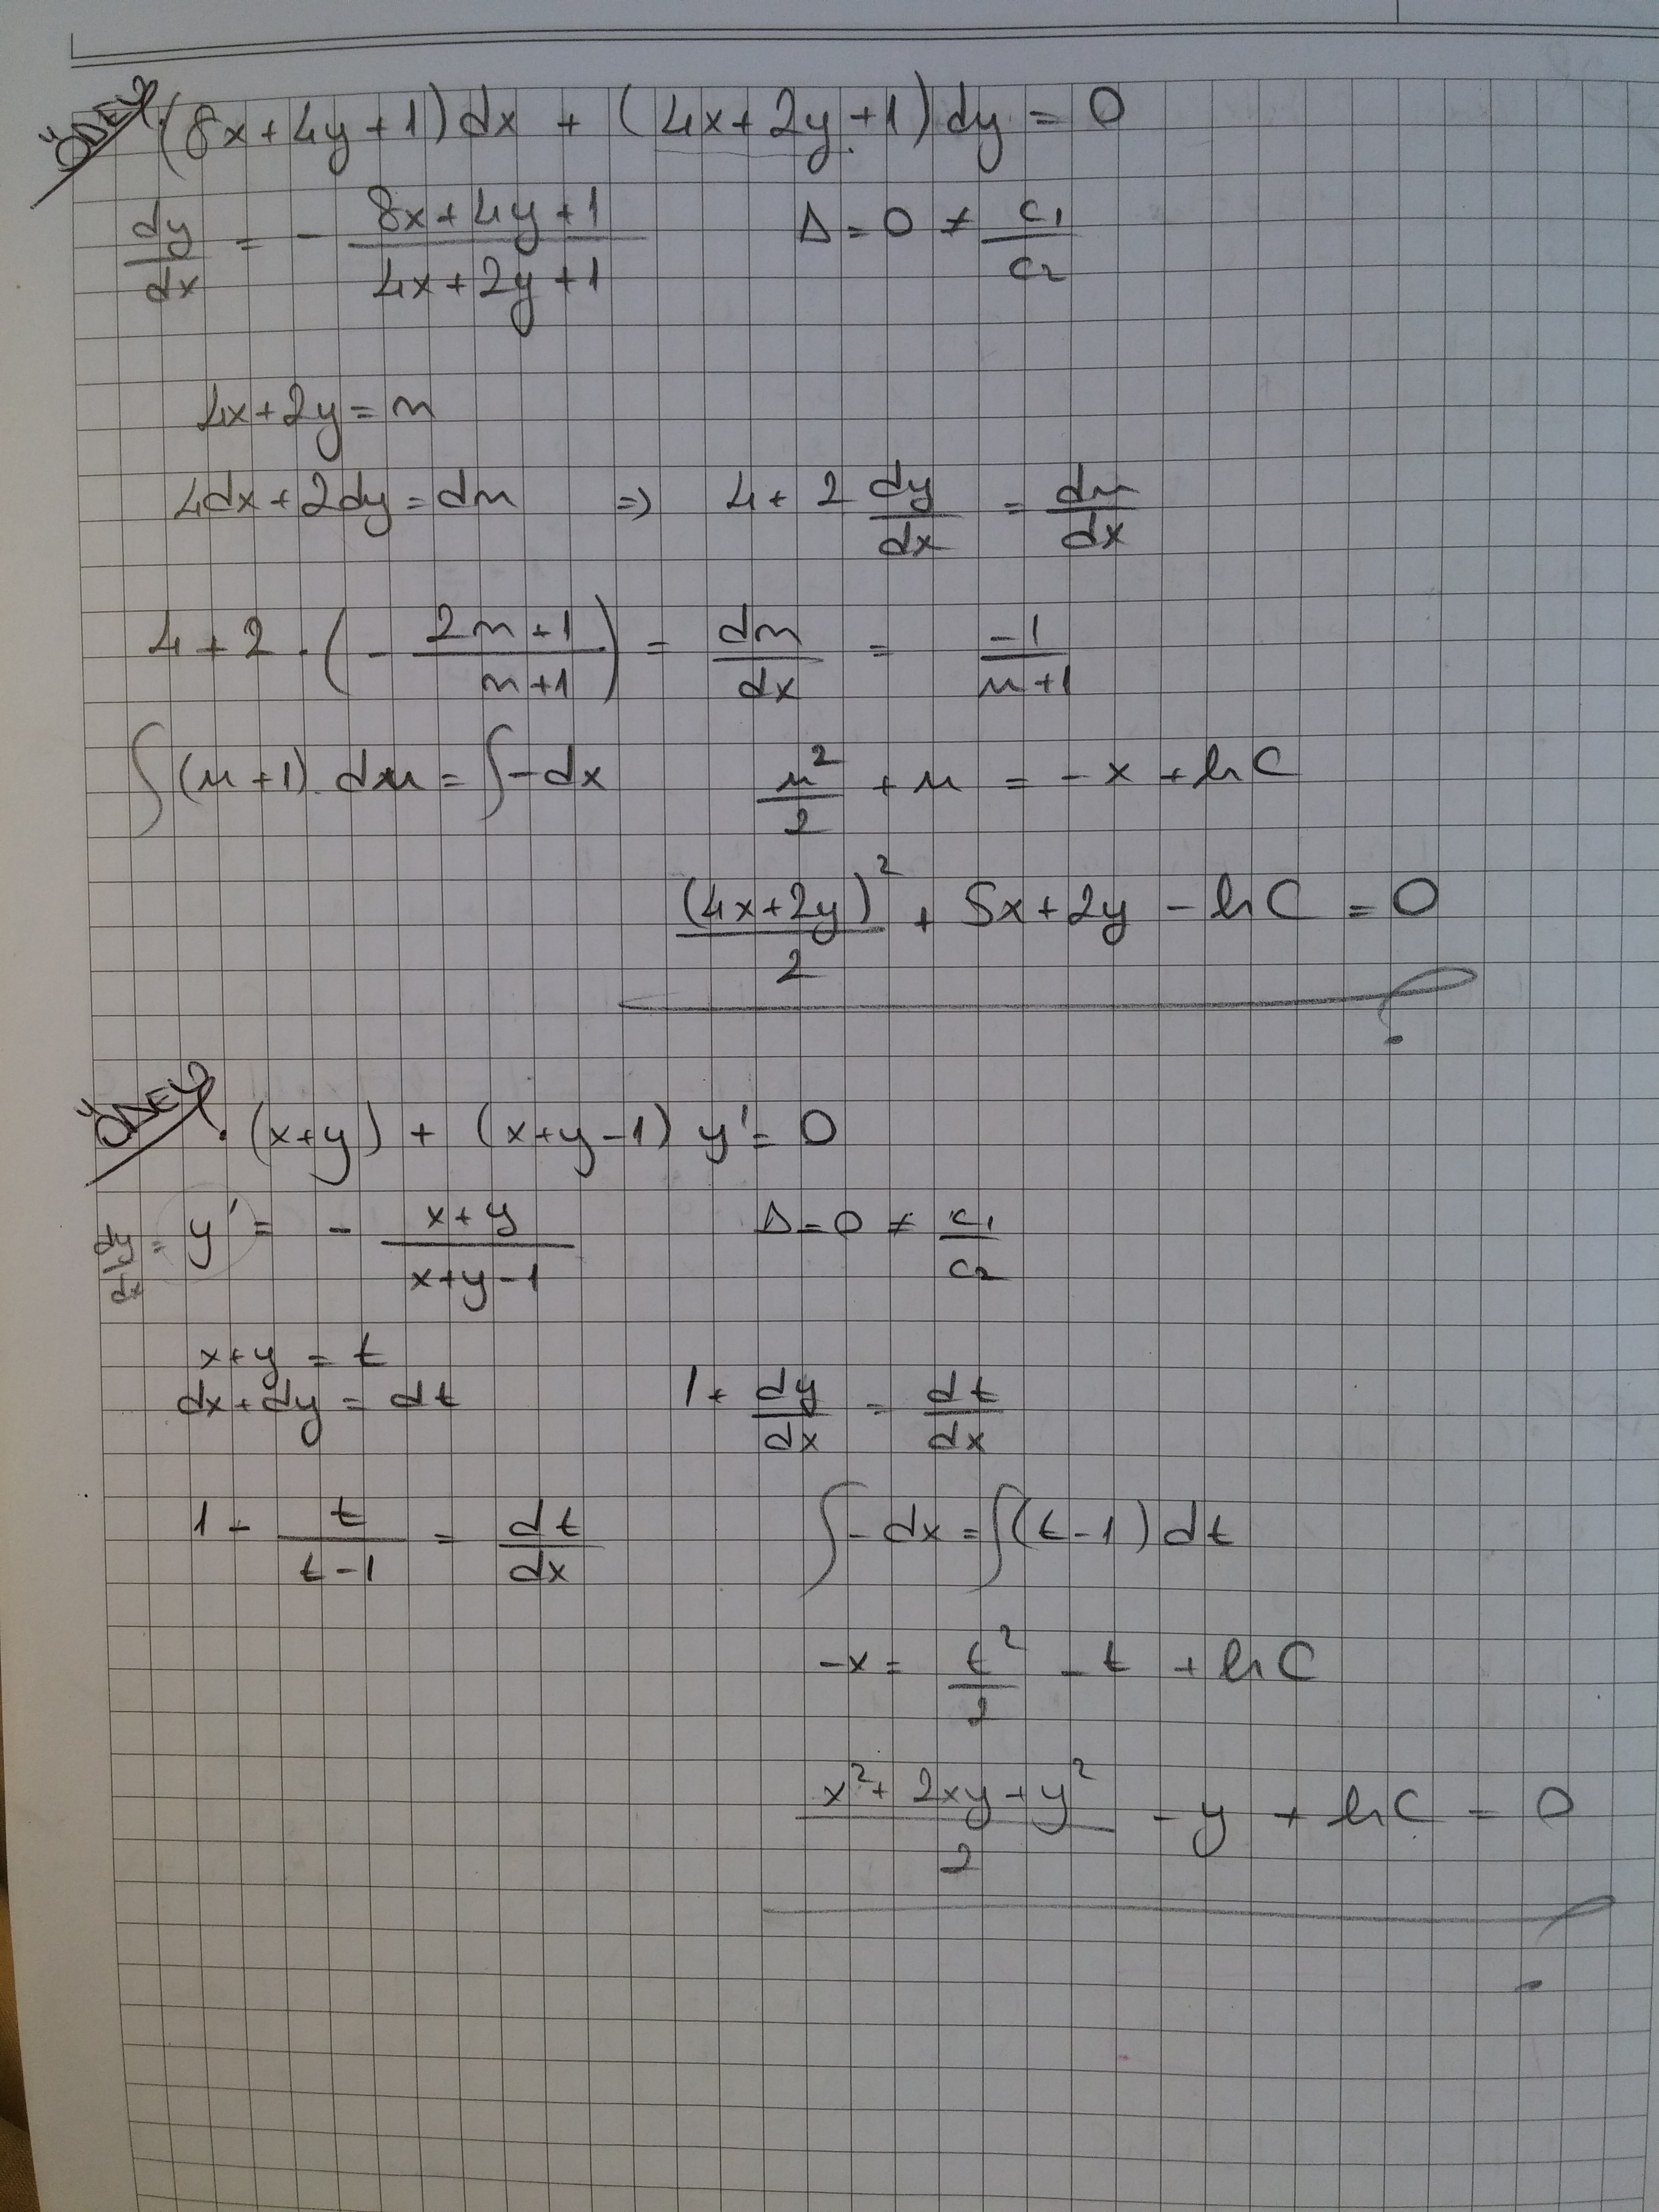 ÖDEV. (8x+4y+1)dx + (4x+2y+1)dy = 0
dy/dx = - (8x+4y+1)/(4x+2y+1)   Δ=0 ≠ c₁/c₂
4x+2y=u
4dx+2dy=du ⇒ 4+2 dy/dx = du/dx
4+2.(- (2u+1)/(u+1)) = du/dx = -1/(u+1)
∫(u+1).du = ∫-dx   u²/2 + u = -x + lnC
(4x+2y)²/2 + 5x+2y - lnC = 0
ÖDEV. (x+y) + (x+y-1) y' = 0
dy/dx = y' = - (x+y)/(x+y-1)   Δ=0 ≠ c₁/c₂
x+y = t
dx+dy = dt   1+ dy/dx = dt/dx
1- t/(t-1) = dt/dx   ∫-dx = ∫(t-1)dt
-x = t²/2 - t + lnC
(x²+2xy+y²)/2 - y + lnC = 0